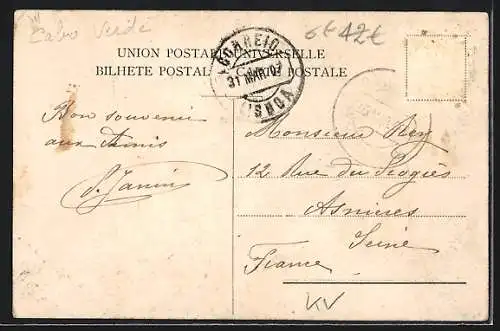 Cabo Verde
6€ 12€
UNION POSTALE UNIVERSELLE
BILHETE POSTAL CARTE POSTALE
CORREIO
31 MAR 07
LISBOA
Bon souvenir
aux Amis
Monsieur Rey
12 Rue du Progrès
Asnieres
Seine
France
KV